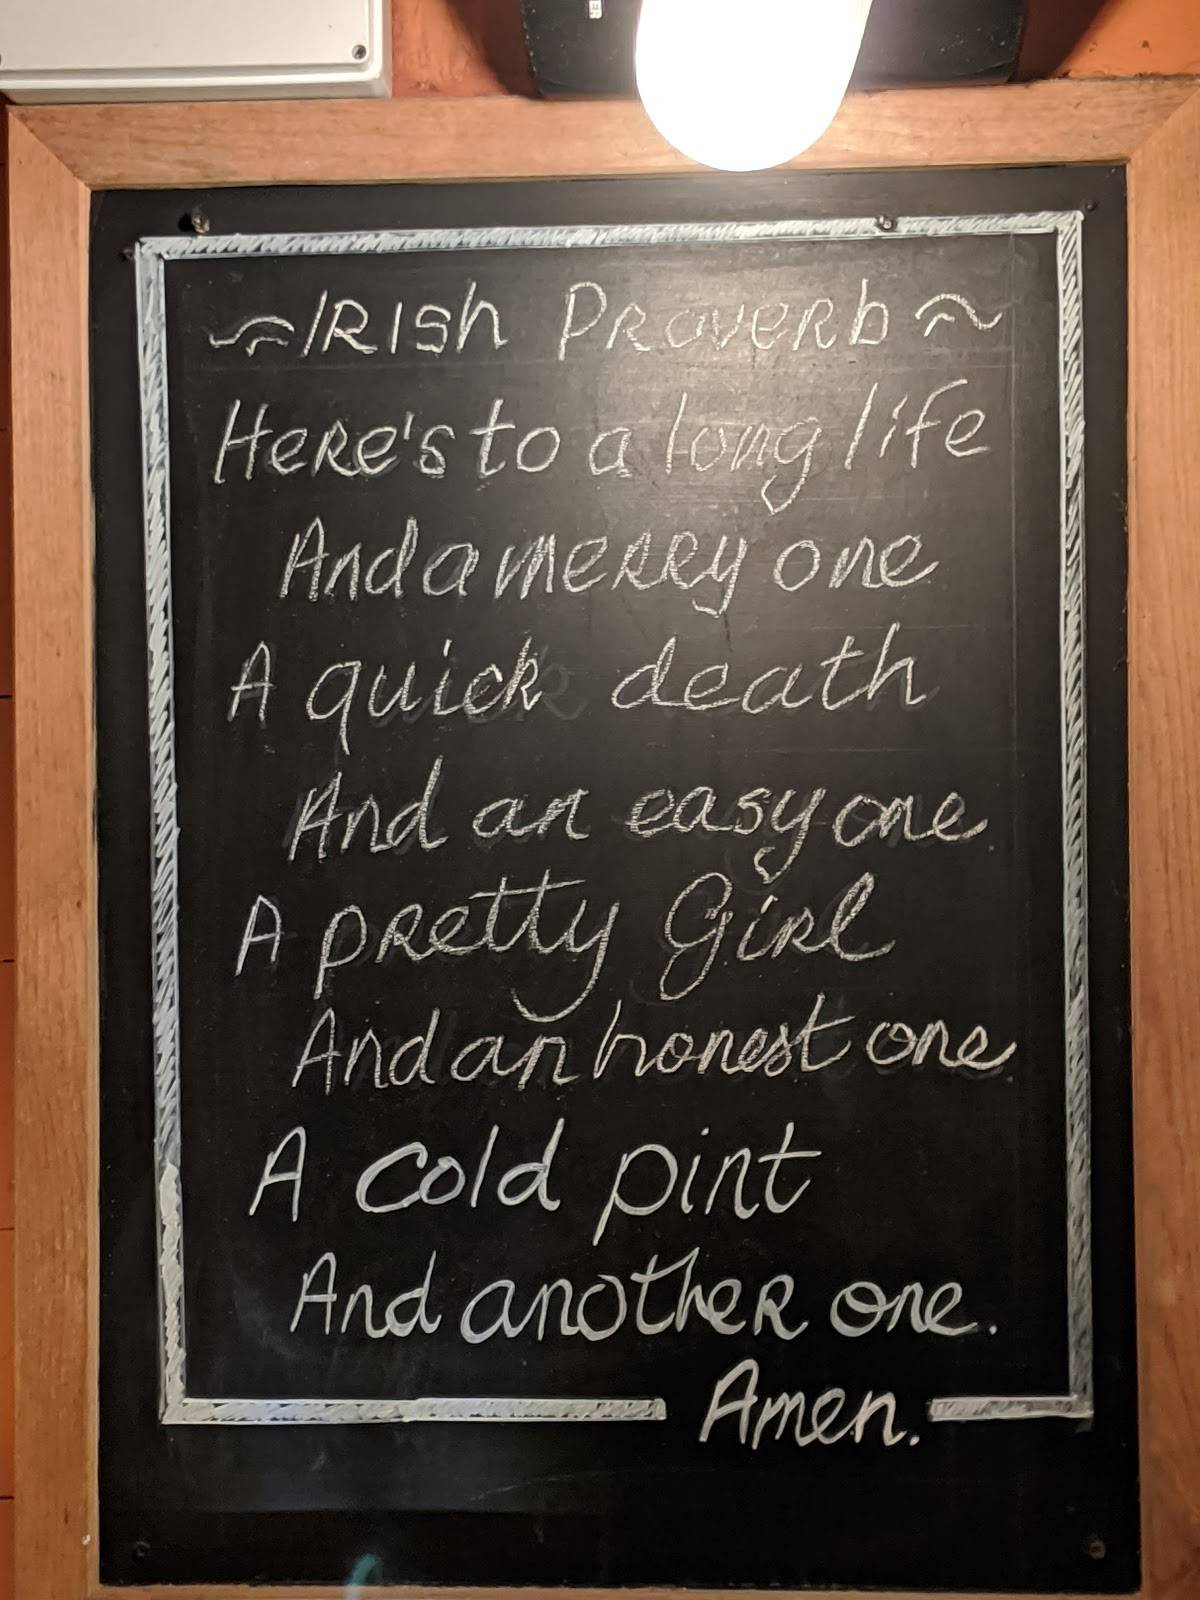 ~IRISH PROVERB~
Here's to a long life
And a merry one
A quick death
And an easy one.
A pretty Girl
And an honest one.
A cold pint
And another one.
Amen.